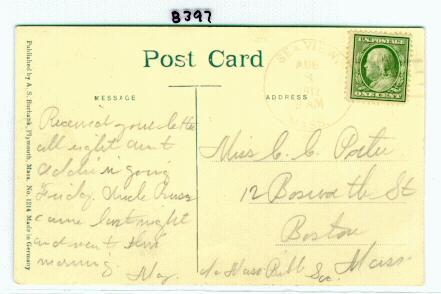 8397
Post Card
SEA VIEW
AUG
3
AM
MASS.
U.S. POSTAGE
ONE CENT
MESSAGE
ADDRESS
Published by A. S. Burbank, Plymouth, Mass. No. 1214 Made in Germany
Received your letter
all right Aunt
Addie is going
Friday. Uncle
came last night
and went this
morning
May.
Miss C. C. Porter
12 Bosworth St
Boston
Mass
c/o Mass Bible Soc.